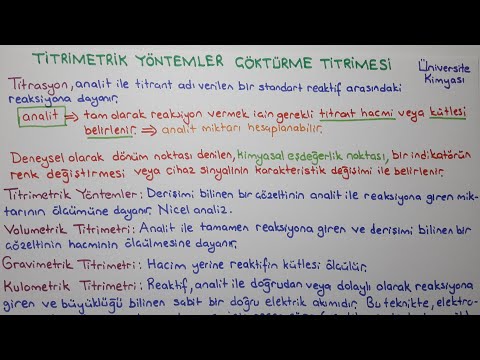 TİTRİMETRİK YÖNTEMLER GÖKTÜRME TİTRİMESİ
Üniversite
Kimyası
Titrasyon, analit ile titrant adı verilen bir standart reaktif arasındaki
reaksiyona dayanır.
analit ⇒ tam olarak reaksiyon vermek için gerekli titrant hacmi veya kütlesi
belirlenir. ⇒ analit miktarı hesaplanabilir.
Deneysel olarak dönüm noktası denilen, kimyasal eşdeğerlik noktası, bir indikatörün
renk değiştirmesi veya cihaz sinyalinin karakteristik değişimi ile belirlenir.
Titrimetrik Yöntemler: Derişimi bilinen bir çözeltinin analit ile reaksiyona giren mik-
tarının ölçümüne dayanır. Nicel analiz.
Volumetrik Titrimetri: Analit ile tamamen reaksiyona giren ve derişimi bilinen bir
çözeltinin hacminin ölçülmesine dayanır.
Gravimetrik Titrimetri: Hacim yerine reaktifin kütlesi ölçülür.
Kulometrik Titrimetri: Reaktif, analit ile doğrudan veya dolaylı olarak reaksiyona
giren ve büyüklüğü bilinen sabit bir doğru elektrik akımıdır. Bu teknikte, elektro-